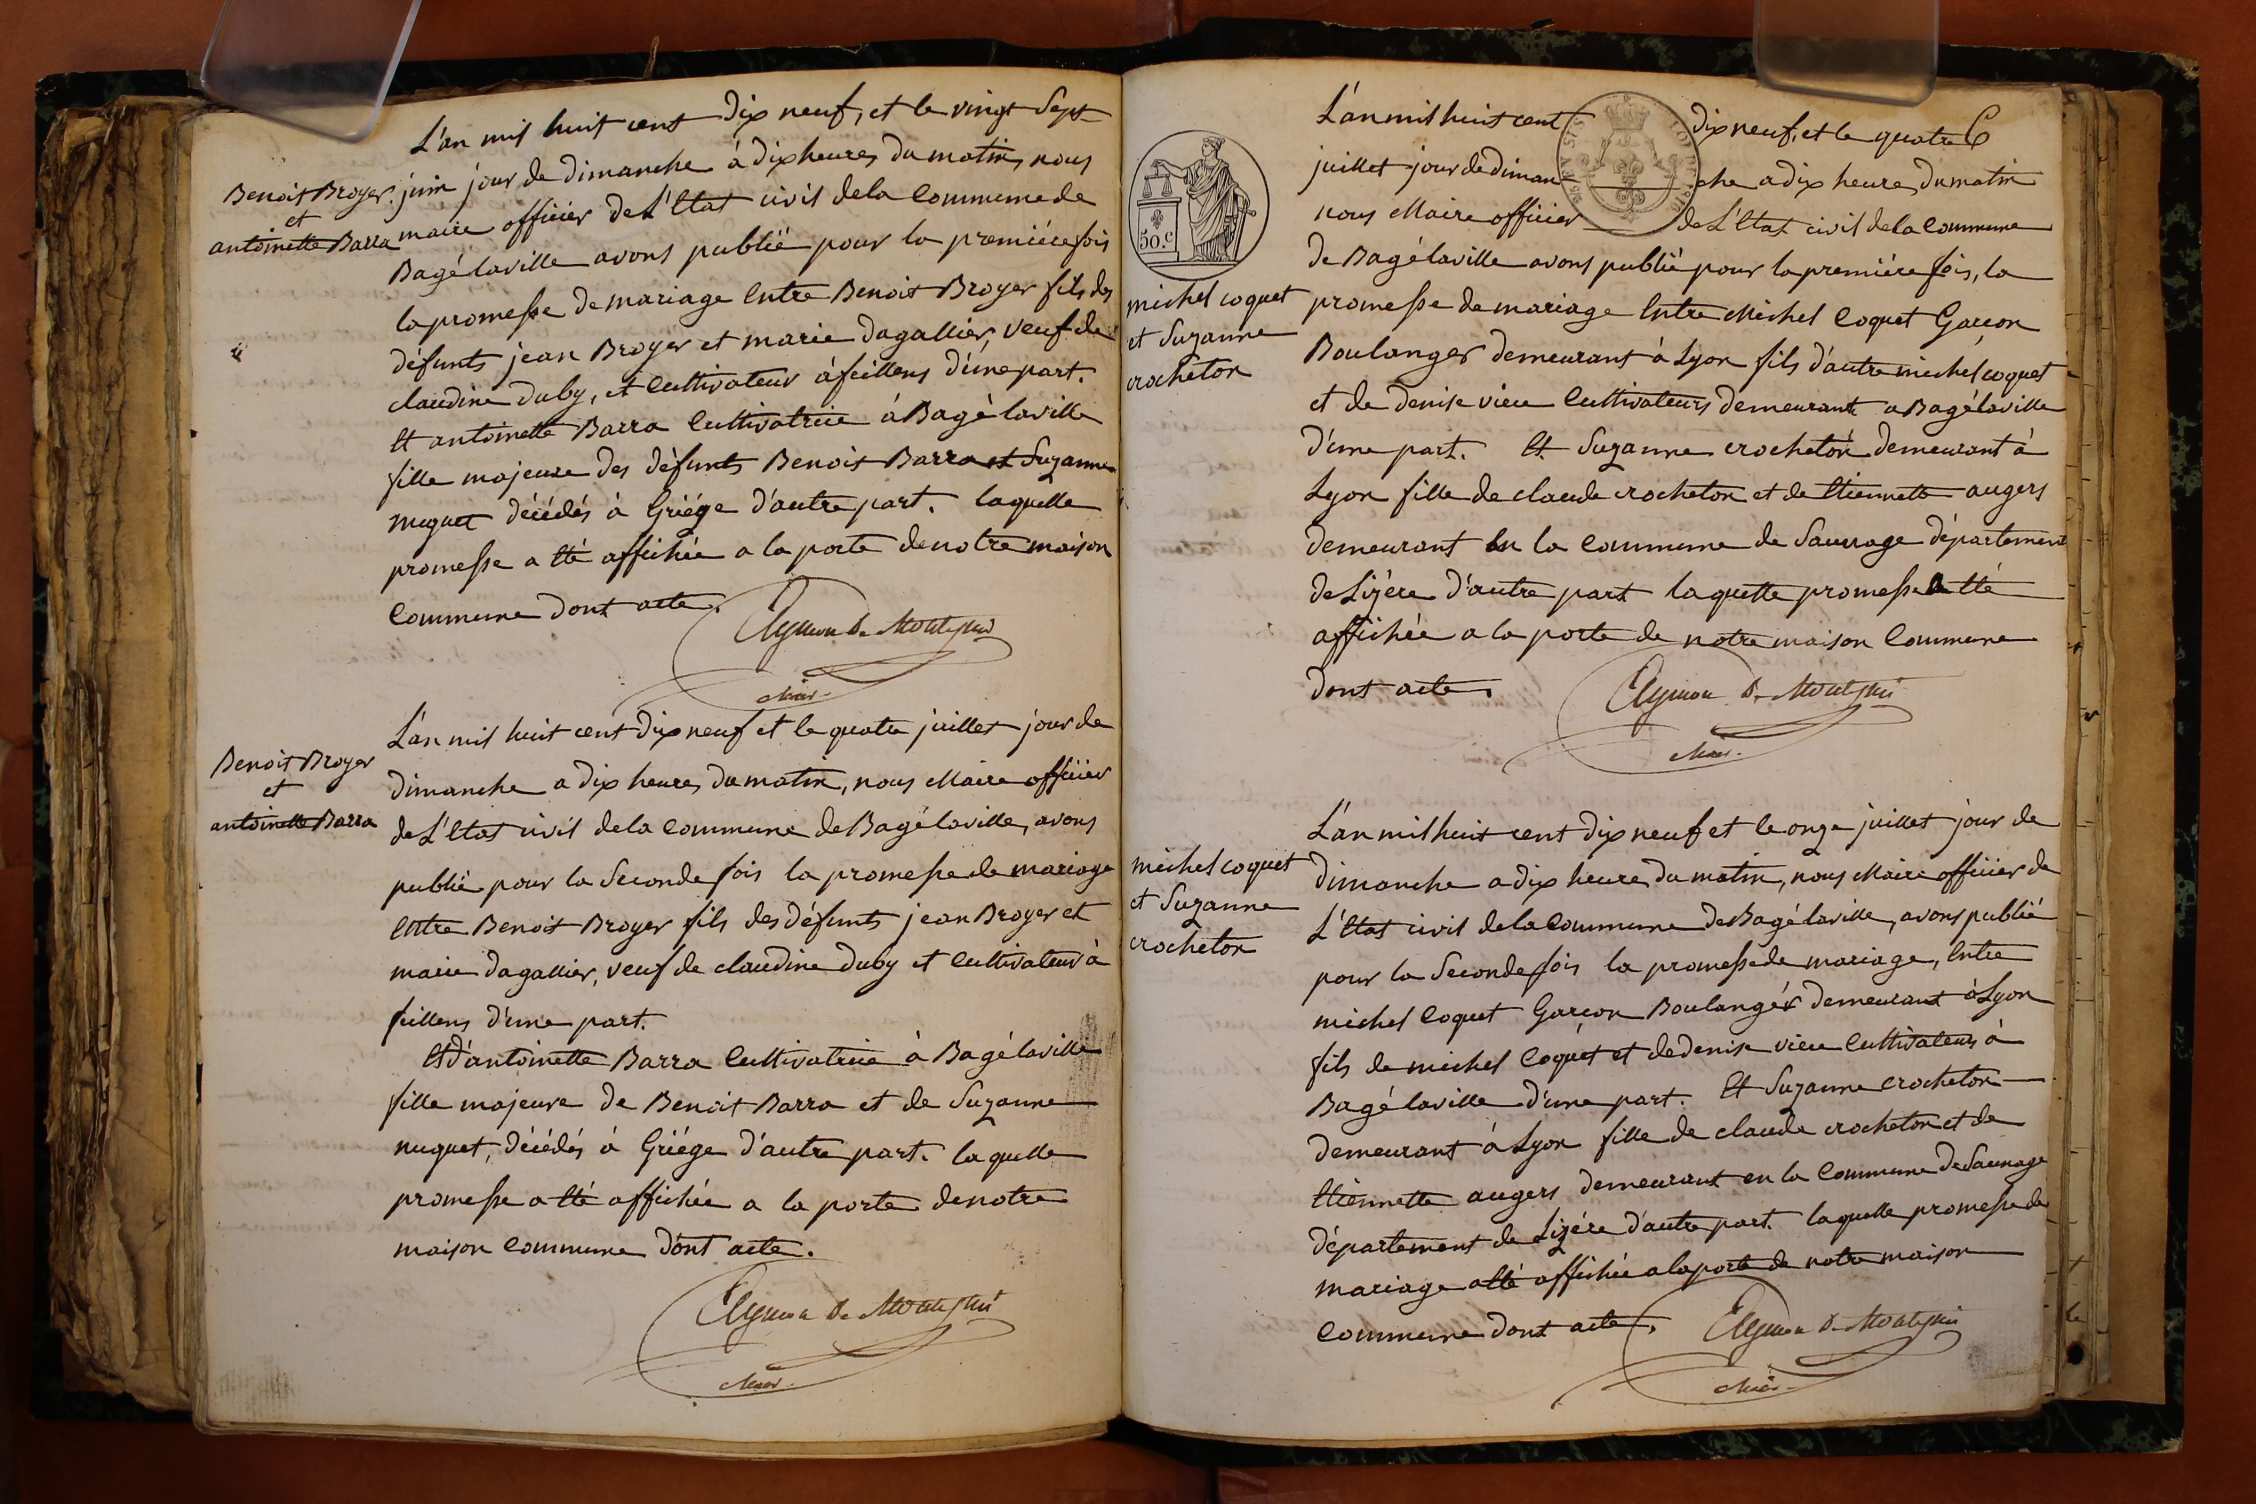 L'an mil huit cent dix neuf, et le vingt Sept
Benoit Broyer
et
antoinette Barra
juin jour de dimanche à dix heures du matin, nous
maire officier de L'Etat civil de la Commune de
Bagé laville avons publié pour la premiére fois
la promesse de mariage Entre Benoit Broyer fils des
défunts jean Broyer et marie dagallier, veuf de
claudine duby, et Cultivateur à feillens d'une part.
Et antoinette Barra Cultivatrice à Bagé laville
fille majeure des défunts Benoit Barra et Suzanne
nuguet décédés à Griége d'autre part. laquelle
promesse a Eté affichée a la porte de notre maison
Commune dont acte.
Aymon De Montépin
Maire
Benoit Broyer
et
antoinette Barra
L'an mil huit cent dix neuf et le quatre juillet jour de
dimanche a dix heures du matin, nous Maire officier
de L'Etat civil de la Commune de Bagé laville, avons
publié pour la Seconde fois la promesse de mariage
Entre Benoit Broyer fils des défunts jean Broyer et
marie dagallier, veuf de claudine duby et Cultivateur à
feillens d'une part.
Et d'antoinette Barra Cultivatrice à Bagé laville
fille majeure de Benoit Barra et de Suzanne
nuguet, décédés à Griége d'autre part. laquelle
promesse a Eté affichée a la porte de notre
maison Commune dont acte.
Aymon De Montépin
Maire
50.c
L'an mil huit cent dix neuf, et le quatre
juillet jour de dimanche a dix heure du matin
nous Maire officier de L'Etat civil de la Commune
de Bagé laville avons publié pour la premiére fois, la
michel coquet
et Suzanne
crocheton
promesse de mariage Entre Michel Coquet Garcon
Boulanger demeurant à Lyon fils d'autre michel coquet
et de denise vieu Cultivateurs demeurant a Bagé laville
d'une part. Et Suzanne crocheton demeurant à
Lyon fille de claude crocheton et de Etiennette augers
demeurant en la Commune de Sauvage département
de Lizére d'autre part laquelle promesse a Eté
affichée a la porte de notre maison Commune
dont acte.
Aymon De Montépin
Maire
michel coquet
et Suzanne
crocheton
L'an mil huit cent dix neuf et le onze juillet jour de
dimanche a dix heure du matin, nous Maire officier de
L'Etat civil de la Commune de Bagé laville, avons publié
pour la Seconde fois la promesse de mariage, Entre
michel Coquet Garcon Boulanger demeurant à Lyon
fils de michel Coquet et de denise vieu Cultivateurs à
Bagé laville d'une part. Et Suzanne crocheton
demeurant à Lyon fille de claude crocheton et de
Etiennette augers demeurant en la Commune de Sauvage
département de Lizére d'autre part. laquelle promesse de
mariage a Eté affichée a la porte de notre maison
Commune dont acte.
Aymon De Montépin
Maire